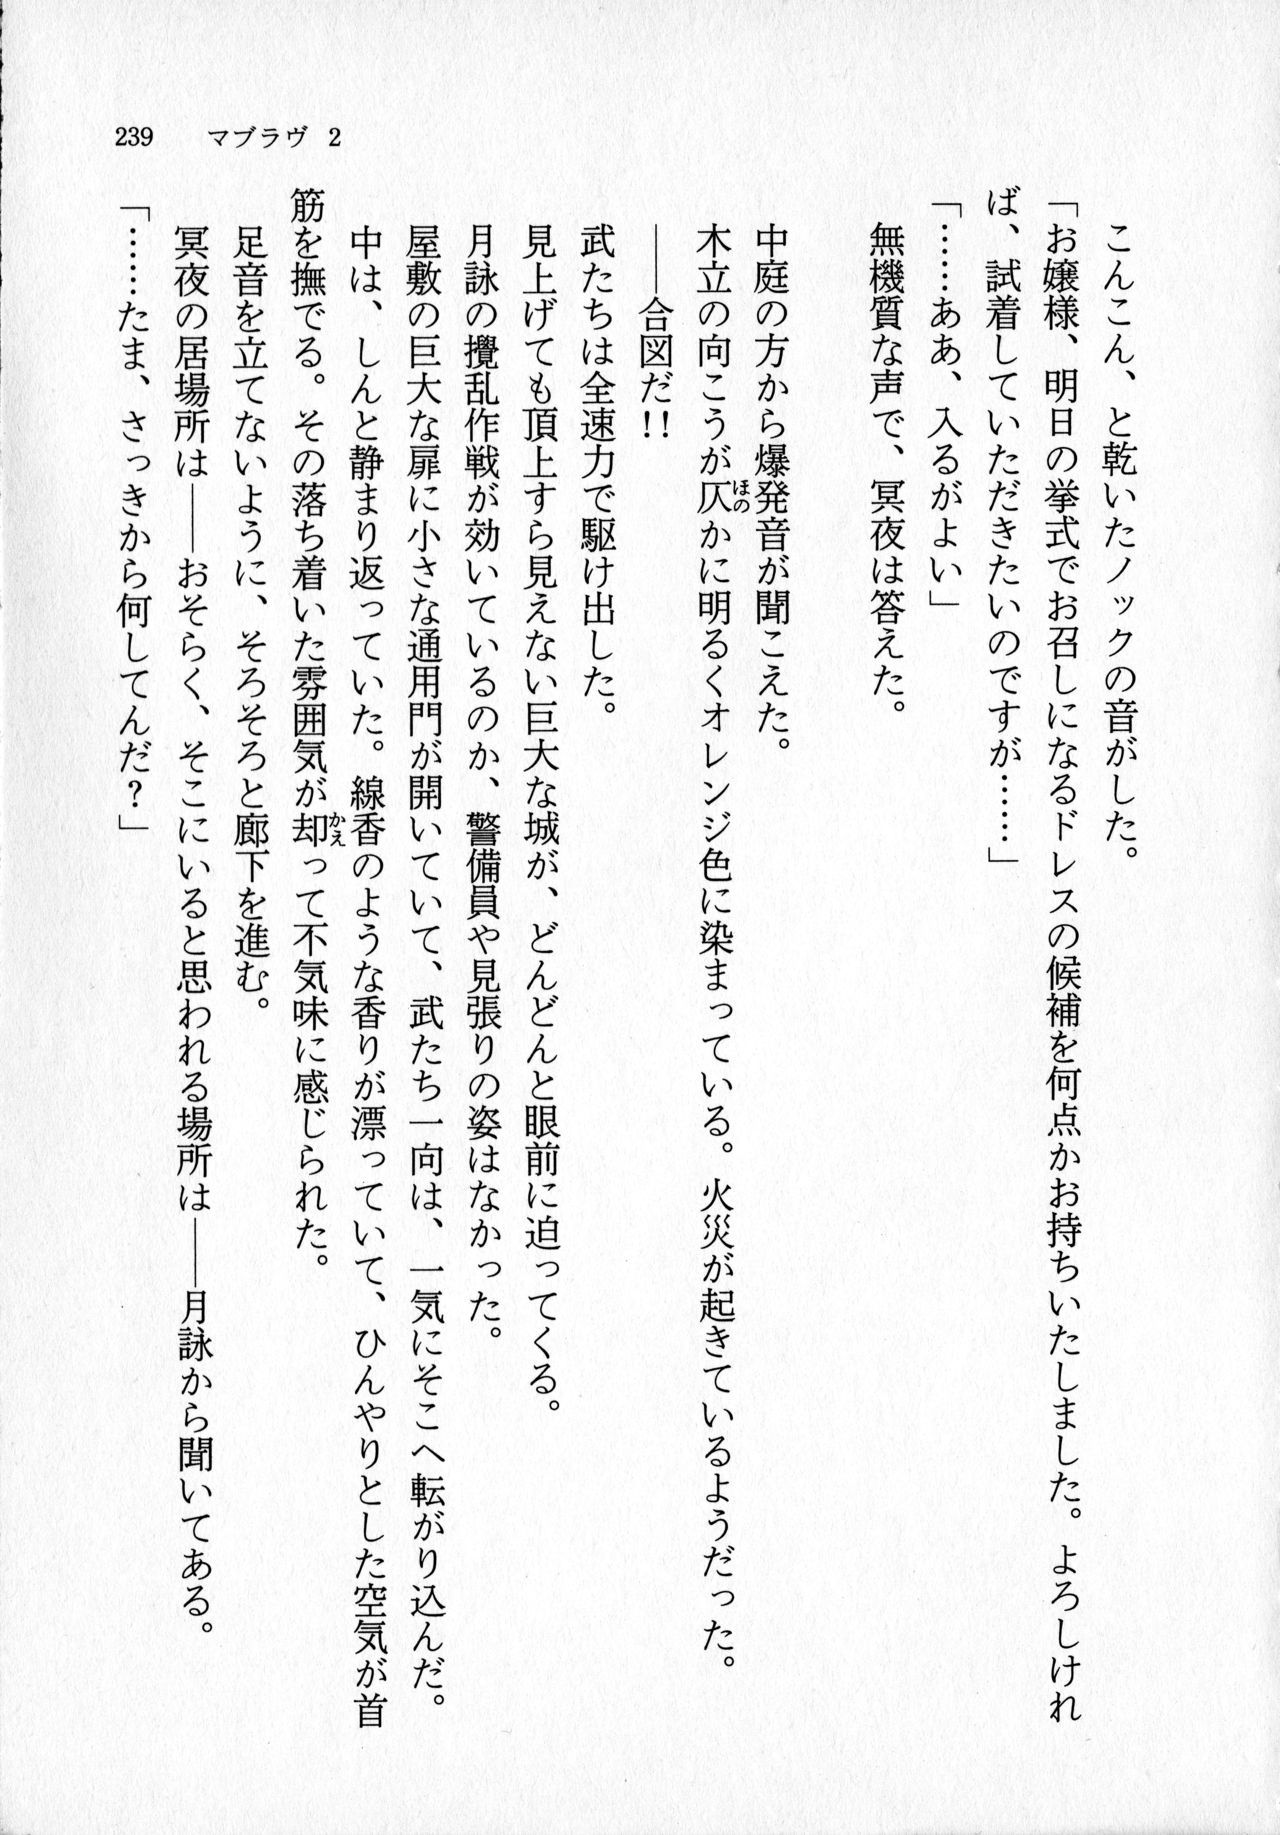 239　マブラヴ 2
　こんこん、と乾いたノックの音がした。
「お嬢様、明日の挙式でお召しになるドレスの候補を何点かお持ちいたしました。よろしけれ
ば、試着していただきたいのですが……」
「……ああ、入るがよい」
　無機質な声で、冥夜は答えた。

　中庭の方から爆発音が聞こえた。
　木立の向こうが仄かに明るくオレンジ色に染まっている。火災が起きているようだった。
　――合図だ!!
　武たちは全速力で駆け出した。
　見上げても頂上すら見えない巨大な城が、どんどんと眼前に迫ってくる。
　月詠の攪乱作戦が効いているのか、警備員や見張りの姿はなかった。
　屋敷の巨大な扉に小さな通用門が開いていて、武たち一向は、一気にそこへ転がり込んだ。
　中は、しんと静まり返っていた。線香のような香りが漂っていて、ひんやりとした空気が首
筋を撫でる。その落ち着いた雰囲気が却って不気味に感じられた。
　足音を立てないように、そろそろと廊下を進む。
　冥夜の居場所は――おそらく、そこにいると思われる場所は――月詠から聞いてある。
「……たま、さっきから何してんだ？」